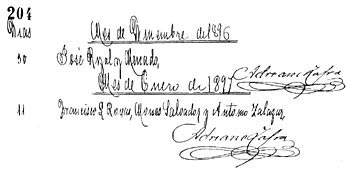 204
Dias
Mes de Diciembre de 1896
30 José Rizal y Mercado,
Mes de Enero de 1897
Adriano
11 Francisco L Roxas, Moises Salvador y Antonio Salazar
Adriano